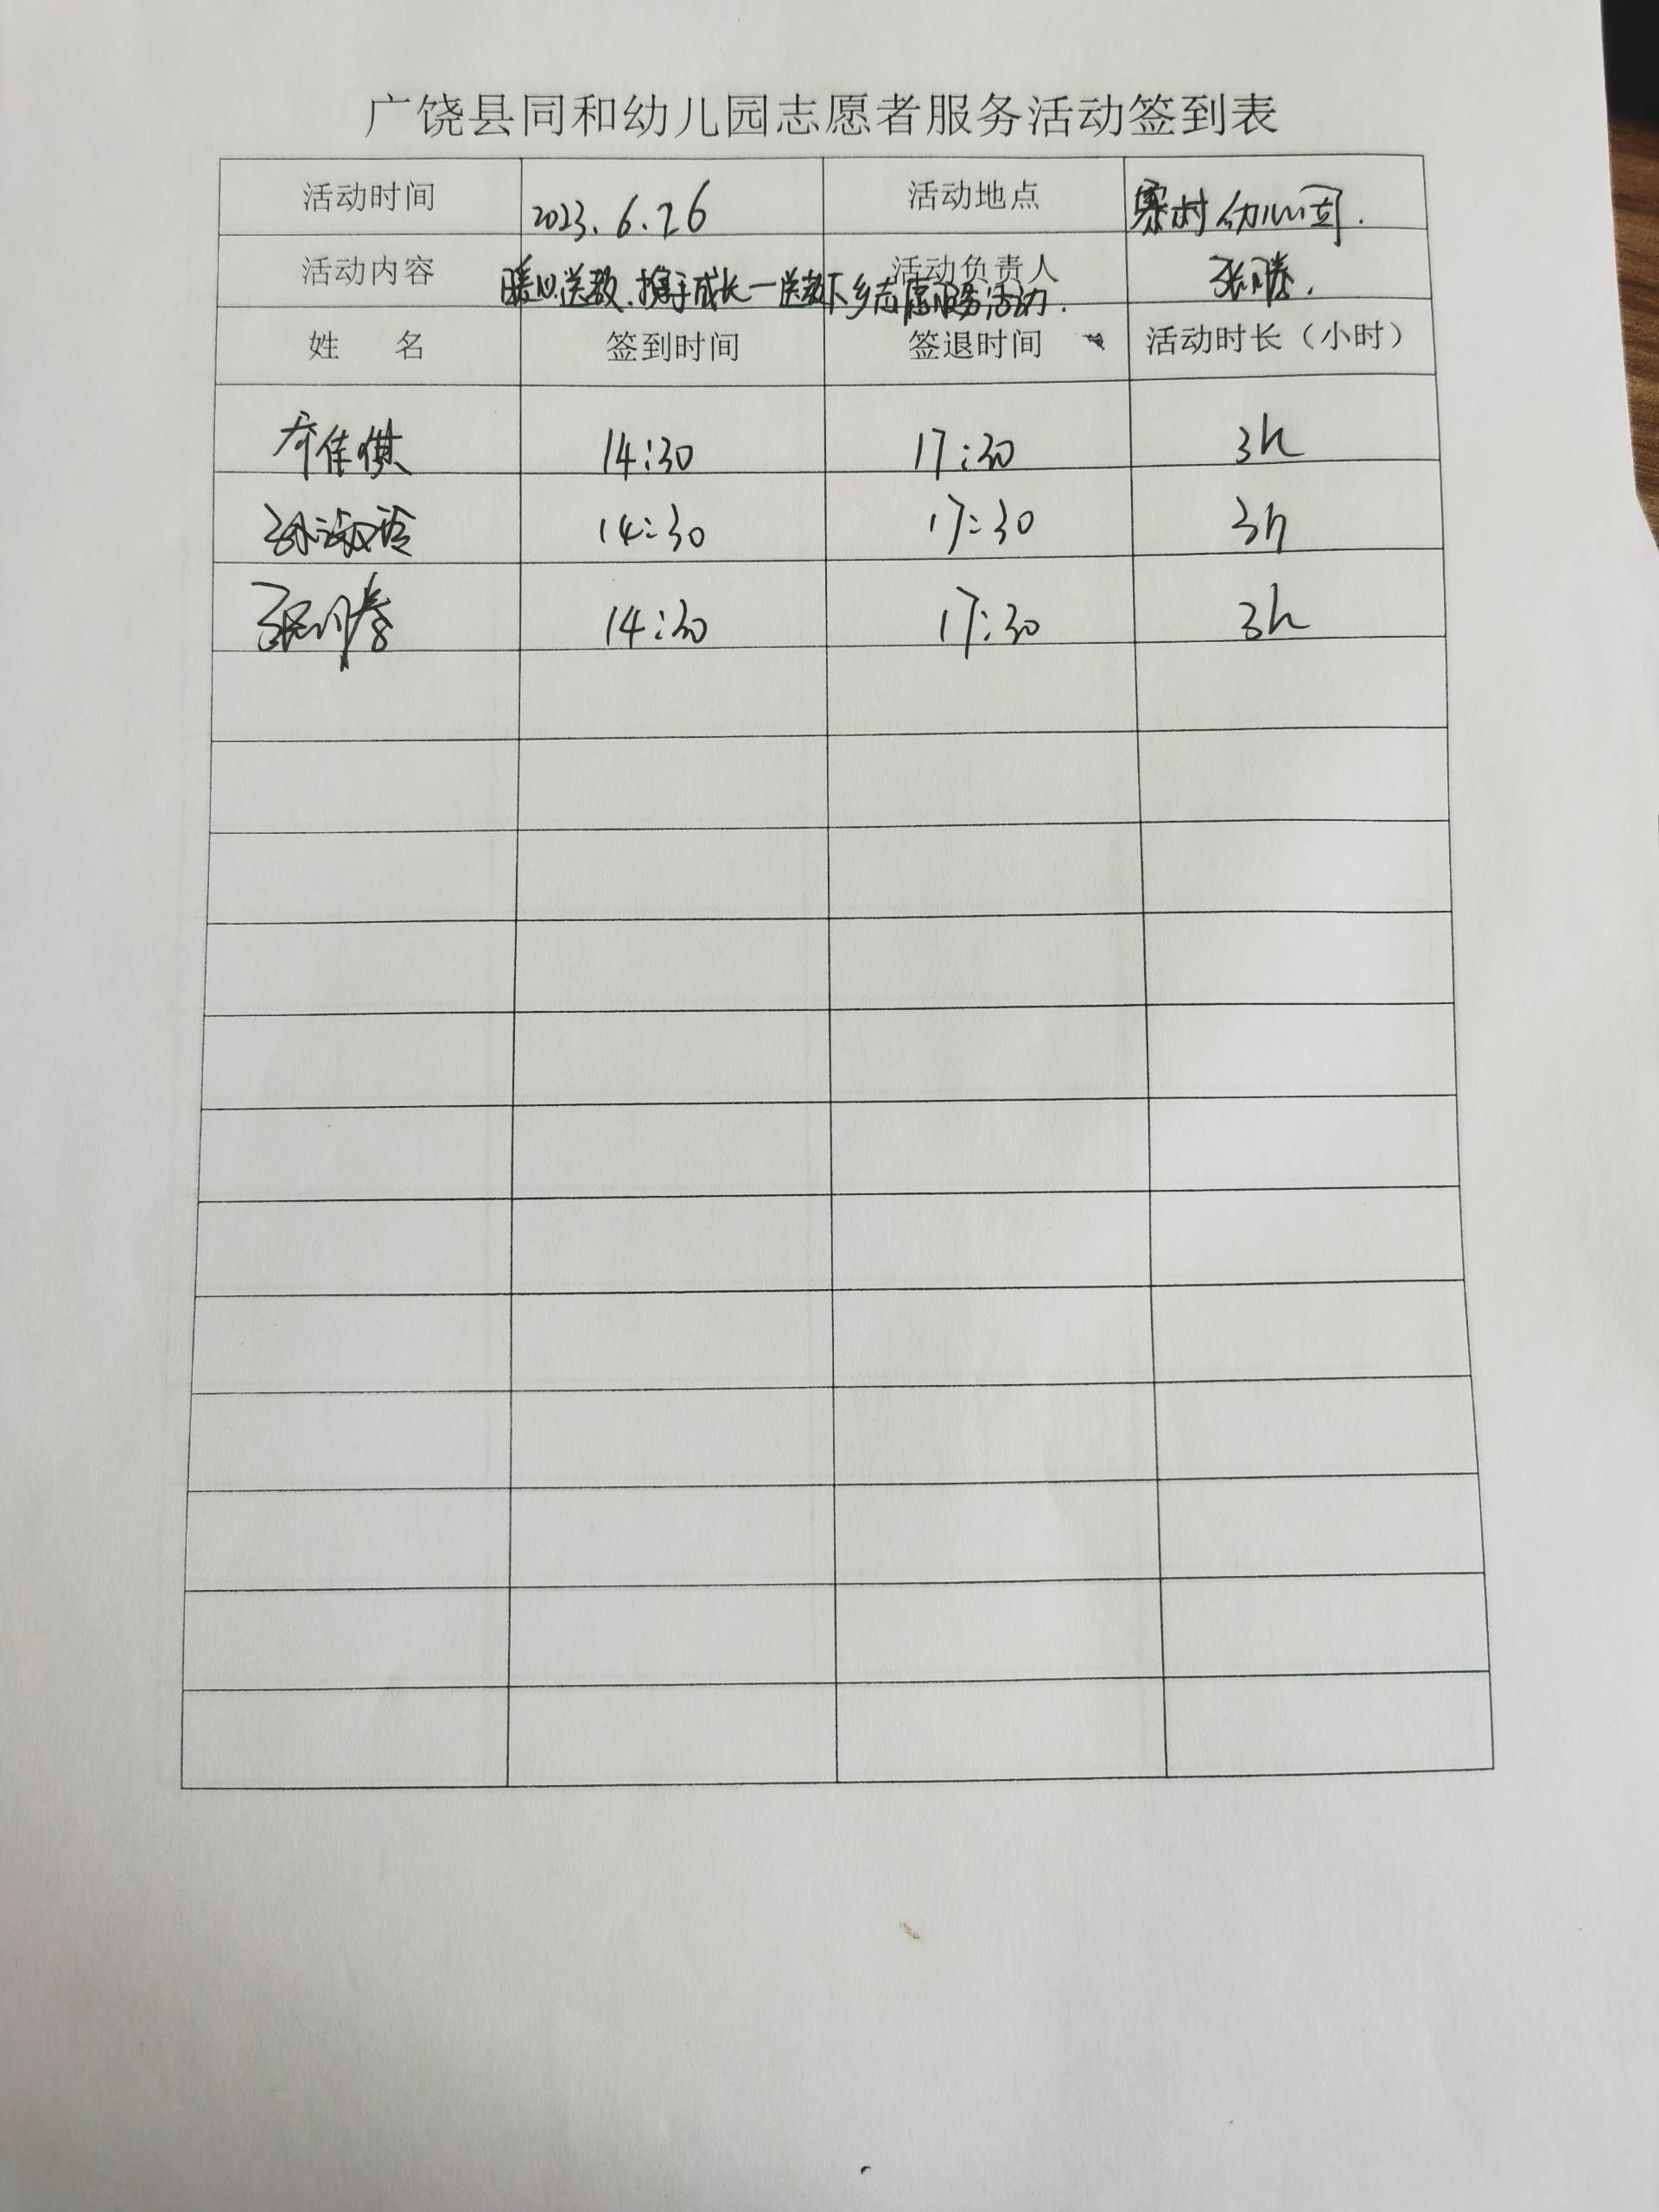 广饶县同和幼儿园志愿者服务活动签到表
活动时间 2023.6.26 活动地点 寨村幼儿园.
活动内容 暖心送教.携手成长—送教下乡志愿服务活动. 活动负责人 张
姓 名 签到时间 签退时间 活动时长（小时）
佳 14:30 17:30 3h
孙淑玲 14:30 17:30 3h
张 14:30 17:30 3h